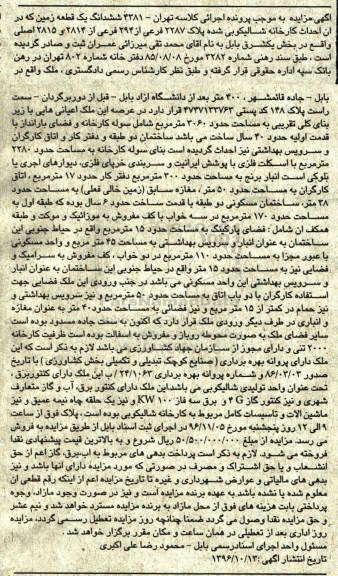 آگهی مزایده به موجب پرونده اجرائی کلاسه تهران - ۴۳۸۱ ششدانگ یک قطعه زمین که در
ان احداث کارخانه شالیکوبی شده پلاک ۲۲۸۷ فرعی از ۲۹۴ فرعی از ۲۸۱۴ و ۲۸۱۵ اصلی
واقع در بخش یکشرق بابل به نام اقای محمد تقی میرزائی عمران ثبت و صادر گردیده
است . طبق سند رهنی شماره ۳۲۸۲ مورخ ۸۵/۰۸/۰۸ دفتر خانه شماره ۸۰۲ تهران در رهن
بانک سپه اداره حقوقی قرار گرفته و طبق نظر کارشناس رسمی دادگستری ، ملک واقع در
بابل - جاده قائمشهر ، ۴۰۰ متر بعد از دانشگاه ازاد بابل - قبل از دوربرگردن - سمت
راست پلاک ۱۴۸ کد پستی ۴۷۳۷۱۳۳۷۶۳ قرار دارد در عرصه این ملک اعیانی هایی با زیر
بنای کلی تقریبی به مساحت حدود ۳۰۶۰ مترمربع شامل سوله کارخانه و فضای بارانداز با
قدمت اولیه حدود ۳۰ سال ساخت می باشد ساختمان دو طبقه و دفتر کار و اتاق کارگران
و سرویس بهداشتی نیز احداث گردیده است بنای سوله کارخانه به مساحت حدود ۲۲۸۰
مترمربع با اسکلت فلزی با پوشش ایرانیت و سربندی خرپای فلزی، دیوارهای اجری یا
بلوکی است انبار برنج به مساحت حدود ۳۰۰ مترمربع دفتر کار حدود ۱۷ مترمربع ، اتاق
کارگران به مساحت حدود ۵۰ متر ، مغازه سابق (زمین خالی فعلی) به مساحت حدود
۳۸ متر، ساختمان مسکونی دو طبقه با قدمت ساخت حدود ۶ سال بوده که طبقه اول به
مساحت حدود ۱۷۰ مترمربع در سه خواب با کف مفروش به موزائیک و موکت و طبقه
همکف ان شامل : فضای پارکینگ به مساحت حدود ۱۵ مترمربع واقع در حیاط جنوبی این
ساختمان به عنوان انبار و سرویس بهداشتی به مساحت ۴۵ متر مربع و واحد مسکونی
با عبور مجزا به مساحت حدود ۱۱۰ مترمربع در دو خواب ، کف مفروش به سرامیک و
فضایی نیز به مساحت حدود ۱۵ متر واقع در حیاط جنوبی این ساختمان به عنوان انبار
و سرویس بهداشتی این واحد مسکونی می باشد در جنب ورودی این ملک فضایی جهت
استفاده کارگران با دو باب اتاق به مساحت حدود ۵۰ مترمربع و نیز سرویس بهداشتی و
نیز حمام در کمتر از ۱۵ متر مربع و نیز فضائی به مساحت حدود ۳۰ متر به عنوان مغازه
و انباری در طرف دیگر ورودی ملک قرار دارد که اکنون به سمت جاده مسدود بوده است
سایر فضای ملک به صورت محوطه روباز و مفروش به اسفالت بوده است ظرفیت کارخانه
۲۰۰۰ تنی و دارای مجوز از سازمان جهاد کشاورزی می باشد لازم به ذکر است که این
ملک دارای پروانه بهره برداری( صنایع کوچک تبدیلی و تکمیلی بخش کشاورزی ) با تاریخ
صدور ۸۶/۰۲/۰۳ و شماره پروانه بهره برداری ۲۴/۱۰۶۳ / ب این ملک دارای کنتوربرق ،
تحت عنوان واحد تولیدی شالیکوبی می باشد این ملک دارای کنتور برق، آب و گاز متعارف
شهری و نیز کنتور گاز G۴ و برق سه فاز ۱۰۰ KW و نیز یک حلقه چاه نیمه عمیق و نیز
ماشین الات و تاسیسات کامل مربوط به کارخانه شالیکوبی بوده است ، پلاک فوق از ساعت
۹ الی ۱۲ روز پنجشنبه مورخ ۹۶/۱۱/۰۵ در اجرای ثبت اسناد بابل از طریق مزایده به فروش
می رسد. مزایده از مبلغ ۵۰/۵۰۰/۰۰۰/۰۰۰ ریال شروع و به بالاترین قیمت پیشنهادی نقدا
فروخته می شود. لازم به ذکر است پرداخت بدهی های مربوط به اب،برق، گاز اعم از حق
انشعاب و یا حق اشتراک و مصرف در صورتی که مورد مزایده دارای آنها باشد و نیز
بدهی های مالیاتی و عوارض شهرداری و غیره تا تاریخ مزایده اعم از اینکه رقم قطعی ان
معلوم شده یا نشده باشد به عهده برنده مزایده است و نیز در صورت وجود مازاد، وجوه
پرداختی بابت هزینه های فوق از محل مازاد به برنده مزایده مسترد خواهد شد و نیم عشر
و حق مزایده نقدا وصول می گردد ضمنا چنانچه روز مزایده تعطیل رسمی گردد، مزایده
روز اداری بعد از تعطیلی در همان ساعت و مکان مقرر برگزار خواهد شد .
مسئول واحد اجرای اسنادرسمی بابل - محمود رضا علی اکبری
تاریخ انتشار آگهی :۱۳۹۶/۱۰/۱۳